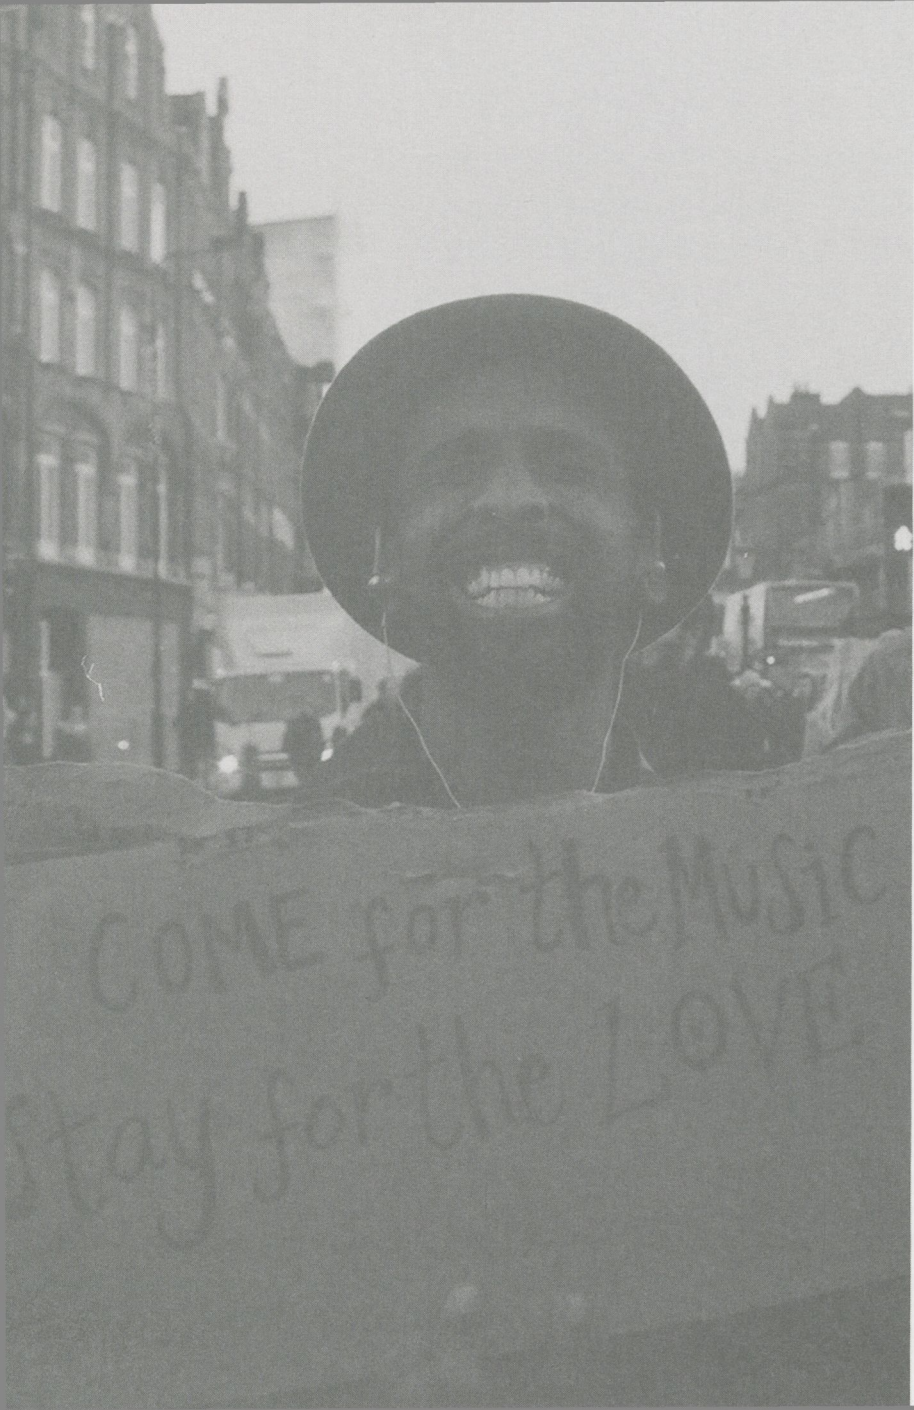 COME for the MuSiC
Stay for the LOVE